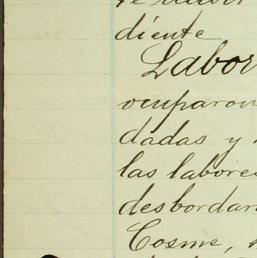 diente
Labor
ocuparon
dadas y
las labore
desbordar
Cosme,